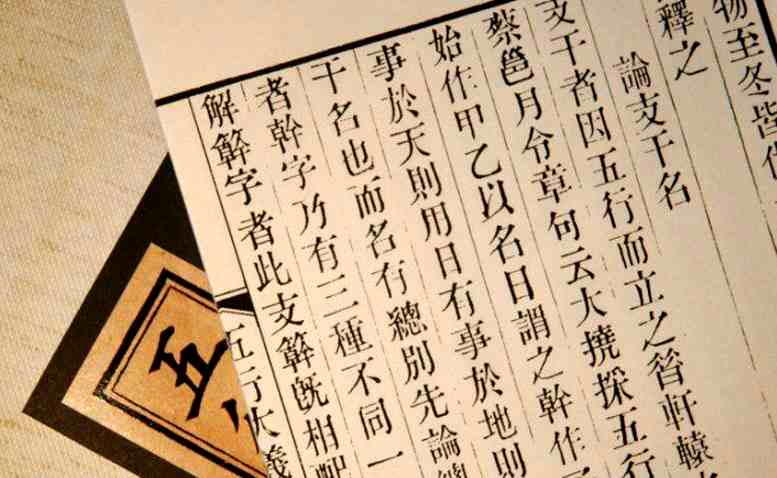 物至冬皆
釋之
論支干名
支干者因五行而立之昔軒轅
蔡邕月令章句云大撓採五行
始作甲乙以名日謂之幹作
事於天則用日有事於地則
干名也而名有總別先論
者幹字乃有三種不同一
解簳字者此支簳既相配
五行大義
五